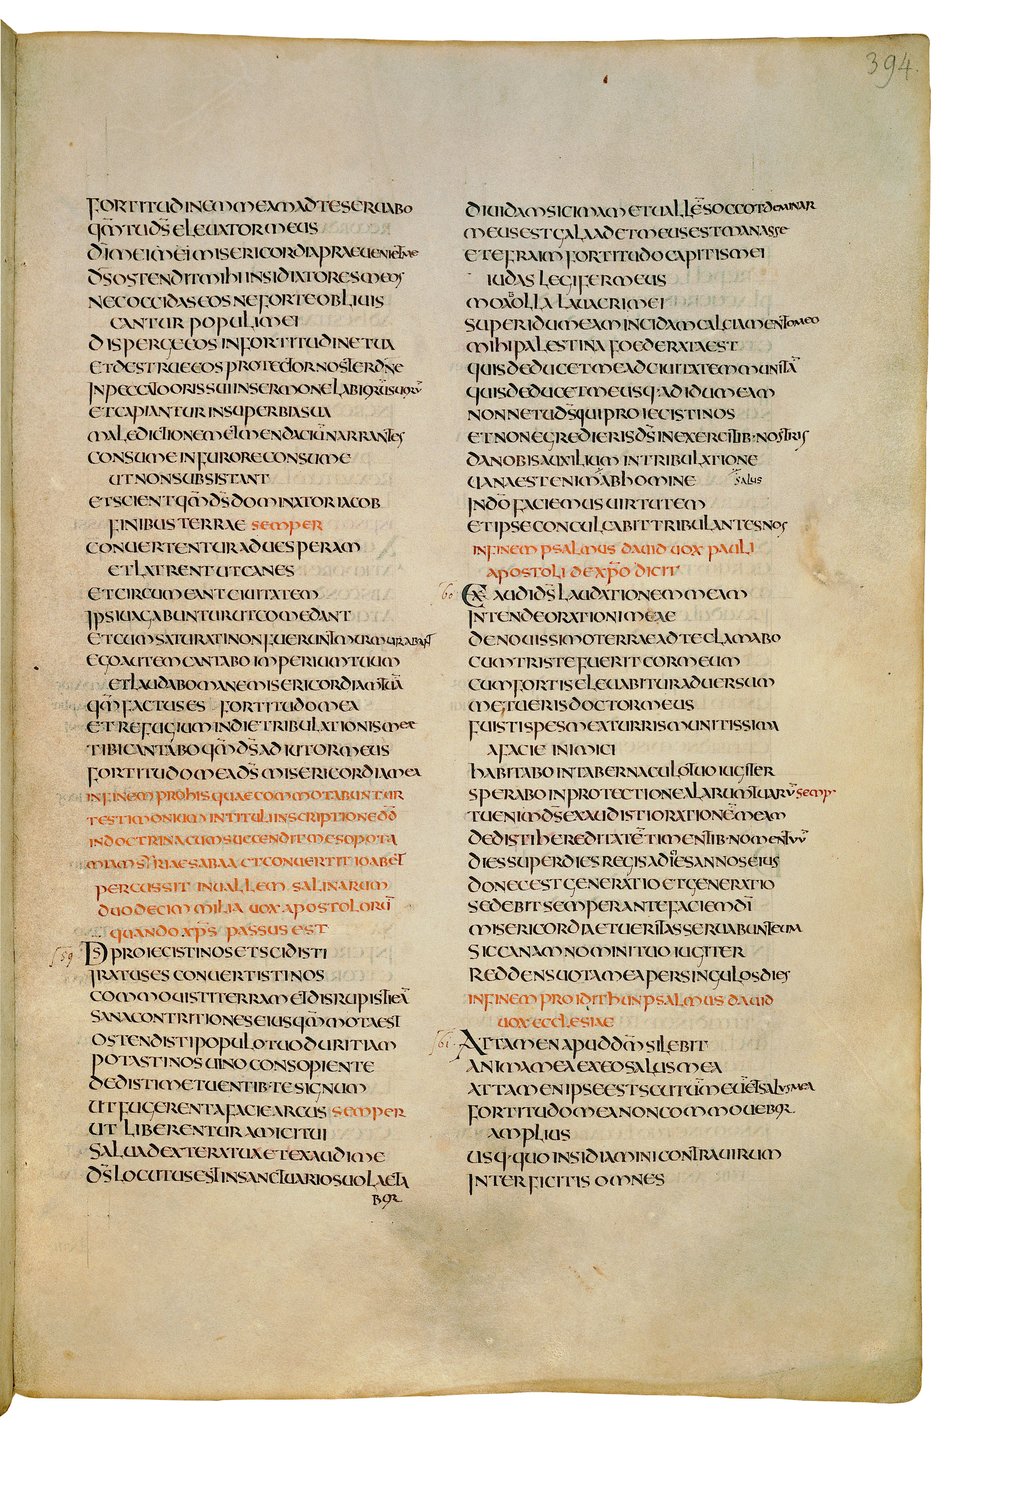 394.
FORTITUDINEM MEAM AD TE SERUABO
QM̅ TU DS̅ ELEUATOR MEUS
DI̅ MEI MEI MISERICORDIA PRAEUENIET ME
DS̅ OSTENDIT MIHI INSIDIATORES MEOS
NE OCCIDAS EOS NE FORTE OBLIUIS
CANTUR POPULI MEI
DISPERGE EOS IN FORTITUDINE TUA
ET DESTRUE EOS PROTECTOR NOSTER DN̅E
IN PECCATO ORIS SUI IN SERMONE LABIORUM SUORU̅
ET CAPIANTUR IN SUPERBIA SUA
MALEDICTIONEM ET MENDACIU̅ NARRANTES
CONSUME IN FURORE CONSUME
UT NON SUBSISTANT
ET SCIENT QM̅ DS̅ DOMINATOR IACOB
FINIBUS TERRAE SEMPER
CONUERTENTUR AD UESPERAM
ET LATRENT UT CANES
ET CIRCUMEANT CIUITATEM
IPSI UAGABUNTUR UT COMEDANT
ET CUM SATURATI NON FUERINT MURMURABUNT
EGO AUTEM CANTABO IMPERIUM TUUM
ET LAUDABO MANE MISERICORDIAM TUA̅
QM̅ FACTUS ES FORTITUDO MEA
ET REFUGIUM IN DIE TRIBULATIONIS MEAE
TIBI CANTABO QM̅ DS̅ ADIUTOR MEUS
FORTITUDO MEA DS̅ MISERICORDIA MEA
IN FINEM PRO HIS QUAE COMMOTABUNTUR
TESTIMONIUM IN TITULI INSCRIPTIONE DD̅
IN DOCTRINA CUM SUCCENDIT MESOPOTA
MIAM SYRIAE SABAA ET CONUERTIT IOAB ET
PERCUSSIT IN UALLEM SALINARUM
DUODECIM MILIA UOX APOSTOLORU̅
QUANDO XPS̅ PASSUS EST
59 DS̅ PROIECISTI NOS ET SCIDISTI
IRATUS ES CONUERTISTI NOS
COMMOUISTI TERRAM ET DISRUPISTI EA̅
SANA CONTRITIONES EIUS QM̅ MOTA EST
OSTENDISTI POPULO TUO DURITIAM
POTASTI NOS UINO CONSOPIENTE
DEDISTI METUENTIB· TE SIGNUM
UT FUGERENT A FACIE ARCUS SEMPER
UT LIBERENTUR AMICI TUI
SALUA DEXTERA TUA ET EXAUDI ME
DS̅ LOCUTUS EST IN SANCTUARIO SUO LAETA
BOR
DIUIDAM SICIMAM ET UALLE̅ SOCCOT DEMINAR
MEUS EST GALAAD ET MEUS EST MANASSE
ET EFRAIM FORTITUDO CAPITIS MEI
IUDAS LEGIFER MEUS
MOAB OLLA LAUACRI MEI
SUPER IDUMEAM INCIDAM CALCIAMENTO MEO
MIHI PALESTINA FOEDERATA EST
QUIS DEDUCET ME AD CIUITATEM MUNITA̅
QUIS DEDUCET ME USQ· AD IDUMEAM
NONNE TU DS̅ QUI PROIECISTI NOS
ET NON EGREDIERIS DS̅ IN EXERCITIB· NOSTRIS
DA NOBIS AUXILIUM IN TRIBULATIONE
UANA EST ENIM AB HOMINE SALUS
IN DO̅ FACIEMUS UIRTUTEM
ET IPSE CONCULCABIT TRIBULANTES NOS
IN FINEM PSALMUS DAUID UOX PAULI
APOSTOLI DE XPO̅ DICIT
60 EXAUDI DS̅ LAUDATIONEM MEAM
INTENDE ORATIONI MEAE
DE NOUISSIMO TERRAE AD TE CLAMABO
CUM TRISTE FUERIT COR MEUM
CUM FORTIS ELEUABITUR ADUERSUM
ME TU ERIS DOCTOR MEUS
FUISTI SPES MEA TURRIS MUNITISSIMA
A FACIE INIMICI
HABITABO IN TABERNACULO TUO IUGITER
SPERABO IN PROTECTIONE ALARUM TUARU̅ SEMP·
TU ENIM DS̅ EXAUDISTI ORATIONE̅ MEAM
DEDISTI HEREDITATE̅ TIMENTIB· NOMEN TUU̅
DIES SUPER DIES REGIS ADICIES ANNOS EIUS
DONEC EST GENERATIO ET GENERATIO
SEDEBIT SEMPER ANTE FACIEM DI̅
MISERICORDIA ET UERITAS SERUABUNT EUM
SIC CANAM NOMINI TUO IUGITER
REDDENS UOTA MEA PER SINGULOS DIES
IN FINEM PRO IDITHUN PSALMUS DAUID
UOX ECCLESIAE
61 ATTAMEN APUD DM̅ SILEBIT
ANIMA MEA EX EO SALUS MEA
ATTAMEN IPSE EST SCUTUM MEU̅ ET SALUS MEA
FORTITUDO MEA NON COMMOUEBOR
AMPLIUS
USQ· QUO INSIDIAMINI CONTRA UIRUM
INTERFICITIS OMNES